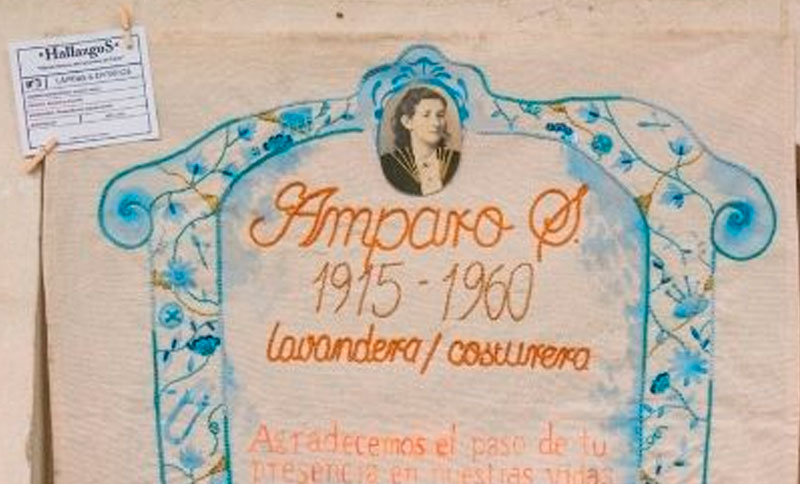 ·HallazguS·
Nº3
Amparo S.
1915-1960
lavandera/costurera
Agradecemos el paso de tu
presencia en nuestras vidas